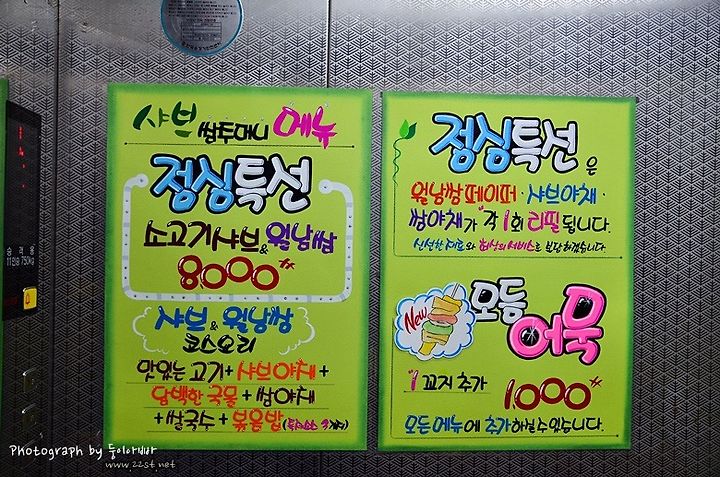 샤브쌈주머니 메뉴
정심특선
소고기샤브&월남쌈
8000
샤브&월남쌈
코스요리
맛있는 고기 + 샤브야채 +
담백한 국물 + 쌈야채
+ 쌀국수 + 볶음밥
정심특선은
월남쌈페이퍼·샤브야채·
쌈야채가 각 1회 리필 됩니다.
신선한 재료와 최식의 서비스로 보답하겠습니다
New
모듬
어묵
1 꼬지 추가 1000
모든메뉴에 추가하실수있습니다.
승객용
11인승 750kg
Photograph by 둥이아빠
www.22st.net